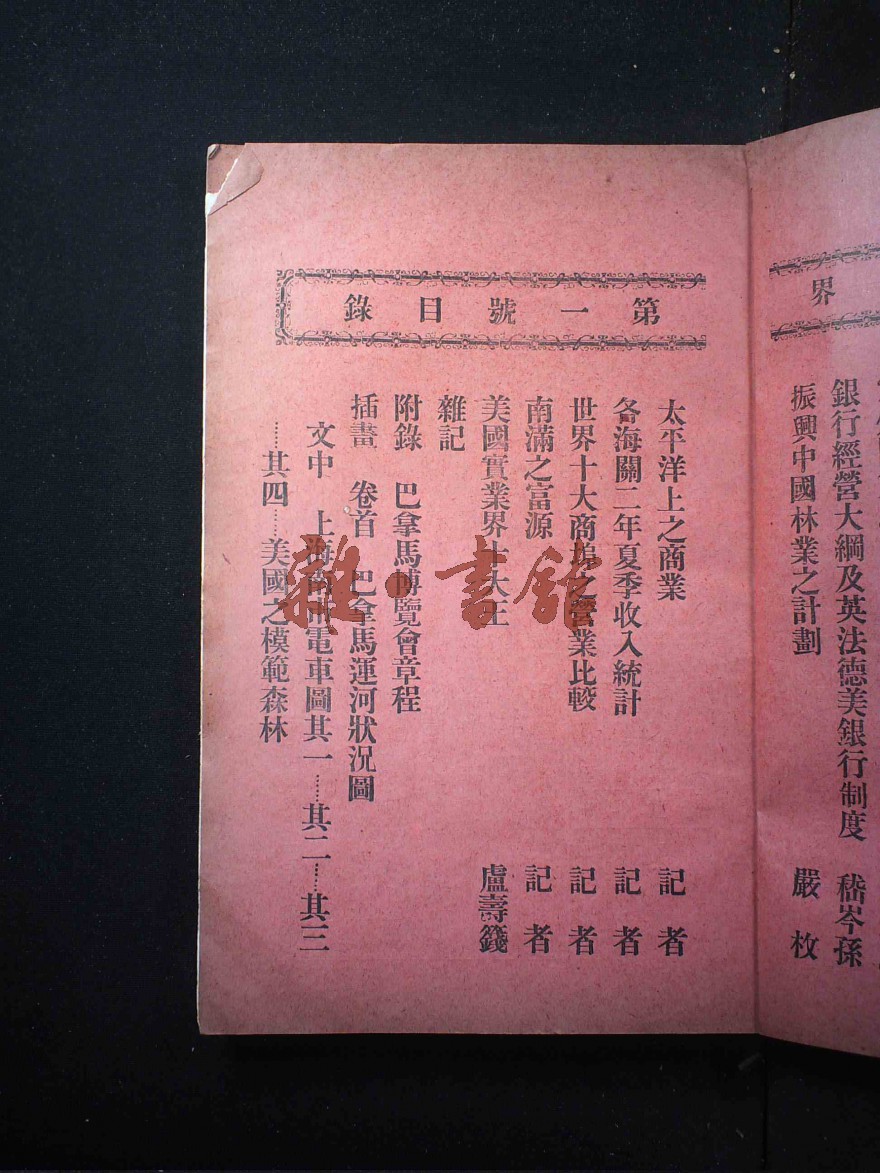 界
銀行經營大綱及英法德美銀行制度　嵇岑孫
振興中國林業之計劃　嚴枚
第一號目錄
太平洋上之商業　記者
各海關二年夏季收入統計　記者
世界十大商埠之營業比較　記者
南滿之富源　記者
美國實業界十大王　盧壽籛
雜記
附錄　巴拿馬博覽會章程
插畫　卷首　巴拿馬運河狀況圖
文中　上海南市電車圖其一……其二……其三
……其四……美國之模範森林
雜·書館